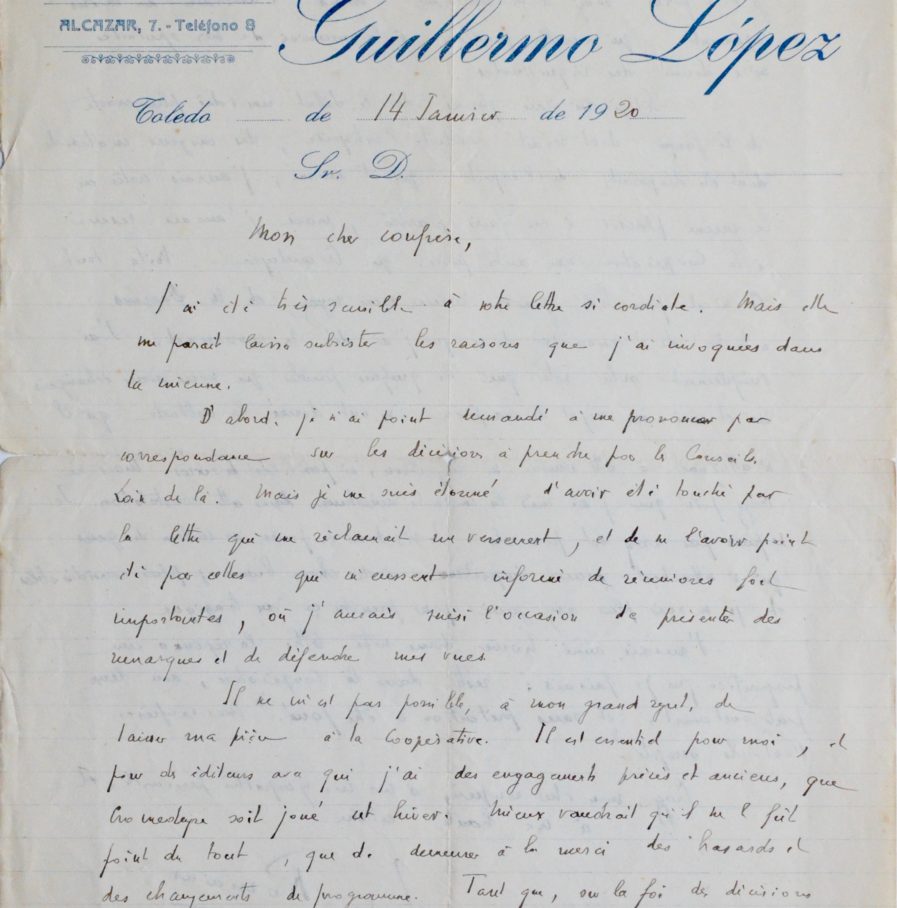 ALCAZAR, 7. - Teléfono 8
Guillermo López
Toledo de 14 Janvier de 1920
Sr. D.
Mon cher confrère,
J'ai été très sensible à votre lettre si cordiale. Mais elle
me parait laisser subsister les raisons que j'ai invoquées dans
la mienne.
D'abord, je n'ai point demandé à me prononcer par
correspondance sur les décisions à prendre par le Conseil.
Loin de là. Mais je me suis étonné d'avoir été touché par
la lettre qui me réclamait un versement, et de ne l'avoir point
été par celles qui m'eussent informé de réunions fort
importantes, où j'aurais saisi l'occasion de présenter des
remarques et de défendre mes vues.
Il ne m'est pas possible, à mon grand regret, de
laisser ma pièce à la Coopérative. Il est essentiel pour moi, et
pour des éditeurs avec qui j'ai des engagements précis et anciens, que
Cromedeyre soit joué cet hiver. Mieux vaudrait qu'il ne le fût
point du tout, que de demeurer à la merci des hasards et
des changements de programme. Tant que, sur la foi des décisions